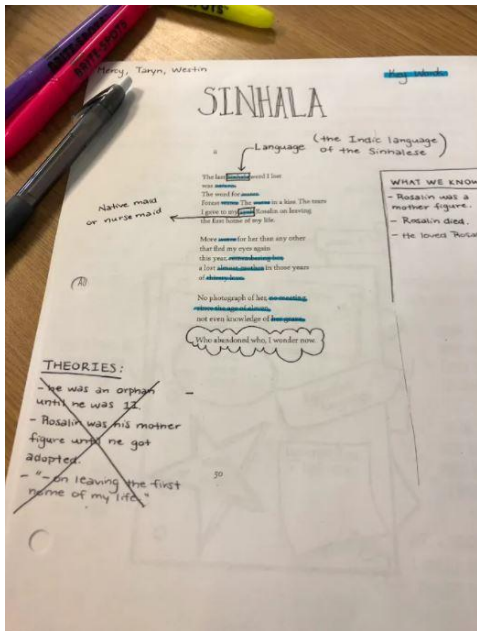 BRITE SPOTS
Mercy, Taryn, Westin
Key Words
SINHALA
Language (the Indic language
of the Sinhalese)
The last Sinhala word I lost
was
The word for water.
Forest The in a kiss. The tears
I gave to my ayah Rosalin on leaving
the first home of my life.
Native maid
or nurse maid
More water for her than any other
that fled my eyes again
this year, remembering her,
a lost almost-mother in those years
of thirsty love.
No photograph of her, no meeting
since the age of eleven,
not even knowledge of her grave.
Who abandoned who, I wonder now.
50
WHAT WE KNOW
- Rosalin was a
mother figure.
- Rosalin died.
- He loved Rosal
THEORIES:
- he was an orphan
until he was 11
- Rosalin was his mother
figure until he got
adopted.
- "- on leaving the first
home of my life."